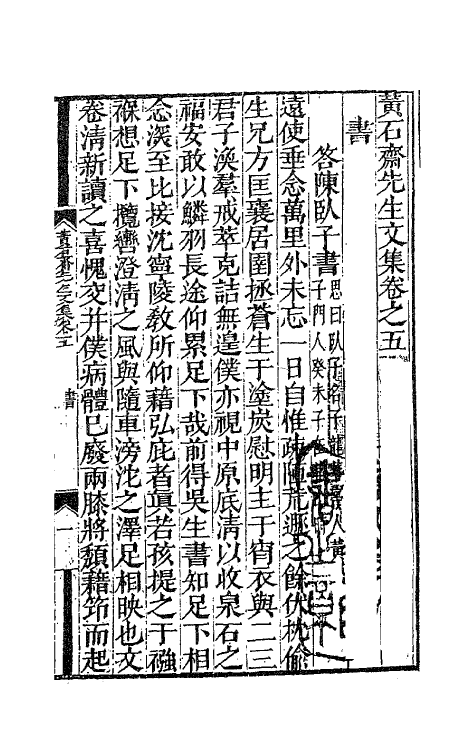 黃石齋先生文集卷之五
書
答陳臥子書
思曰臥子名子龍
子門人癸未子
遠使垂念萬里外未忘一日自惟疎陋荒遯之餘伏枕偷
生兄方匡襄居圉拯蒼生于塗炭慰明主于宵衣與二三
君子渙羣戒萃克詰無遑僕亦視中原底淸以收泉石之
福安敢以鱗羽長途仰累足下哉前得吳生書知足下相
念深至比接沈寧陵敎所仰藉弘庇者眞若孩提之于襁
褓想足下攬轡澄淸之風與隨車滂沈之澤足相映也文
卷淸新讀之喜愧交幷僕病體已廢兩膝將頹藉筇而起
黃石齋先生文集卷五
書
一